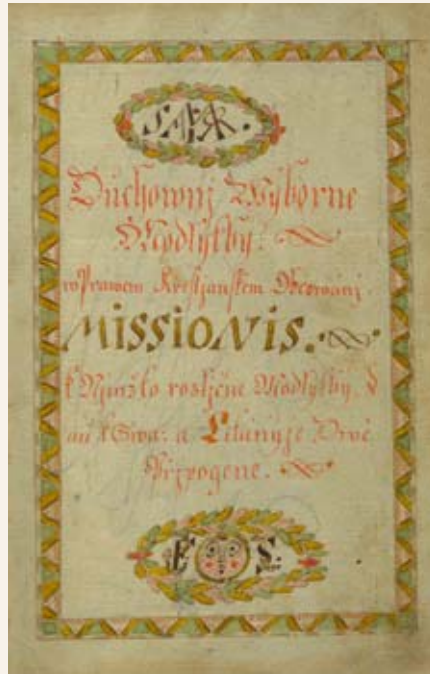 S. MAR.
Duchownj Wýborne
Modlytby.
w Prawem Křestjanskem Obcowánj.
MISSIONIS.
k Nimžto rozljčne Modlytby,
a Litányge Prwé
Přjpogene.
F S.